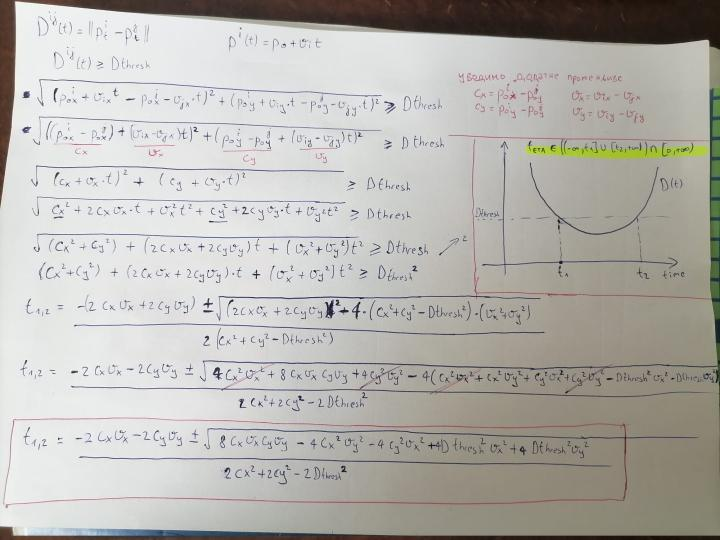 D^{ij}(t) = ||p_t^i - p_t^j||
p^i(t) = p_0 + v_i t
D^{ij}(t) ≥ Dthresh
√((p_{0x}^i + v_{ix}t - p_{0x}^j - v_{jx}·t)² + (p_{0y}^i + v_{iy}·t - p_{0y}^j - v_{jy}·t)²) ≥ Dthresh
√(((p_{0x}^i - p_{0x}^j) + (v_{ix} - v_{jx})t)² + (p_{0y}^i - p_{0y}^j + (v_{iy} - v_{jy})t)²) ≥ Dthresh
cx vx cy vy
√((cx + vx·t)² + (cy + vy·t)²) ≥ Dthresh
√(cx² + 2cxvx·t + vx²t² + cy² + 2cyvy·t + vy²t²) ≥ Dthresh
√((cx² + cy²) + (2cxvx + 2cyvy)t + (vx² + vy²)t²) ≥ Dthresh ↗ ²
(cx² + cy²) + (2cxvx + 2cyvy)·t + (vx² + vy²)t² ≥ Dthresh²
t_{1,2} = (-(2cxvx + 2cyvy) ± √((2cxvx + 2cyvy)² - 4·(cx² + cy² - Dthresh²)·(vx² + vy²))) / 2(cx² + cy² - Dthresh²)
t_{1,2} = (-2cxvx - 2cyvy ± √(4cx²vx² + 8cxvxcyvy + 4cy²vy² - 4(cx²vx² + cx²vy² + cy²vx² + cy²vy² - Dthresh²vx² - Dthresh²vy²))) / 2cx² + 2cy² - 2Dthresh²
t_{1,2} = (-2cxvx - 2cyvy ± √(8cxvxcyvy - 4cx²vy² - 4cy²vx² + 4Dthresh²vx² + 4Dthresh²vy²)) / 2cx² + 2cy² - 2Dthresh²
уводимо
cx = p_{0x}^i - p_{0x}^j vx = vix - vjx
cy = p_{0y}^i - p_{0y}^j vy = viy - vjy
t_{ETA} ∈ ((-∞, t_1] ∪ [t_2, +∞)) ∩ [0, +∞)
D(t)
Dthresh
t_1 t_2 time